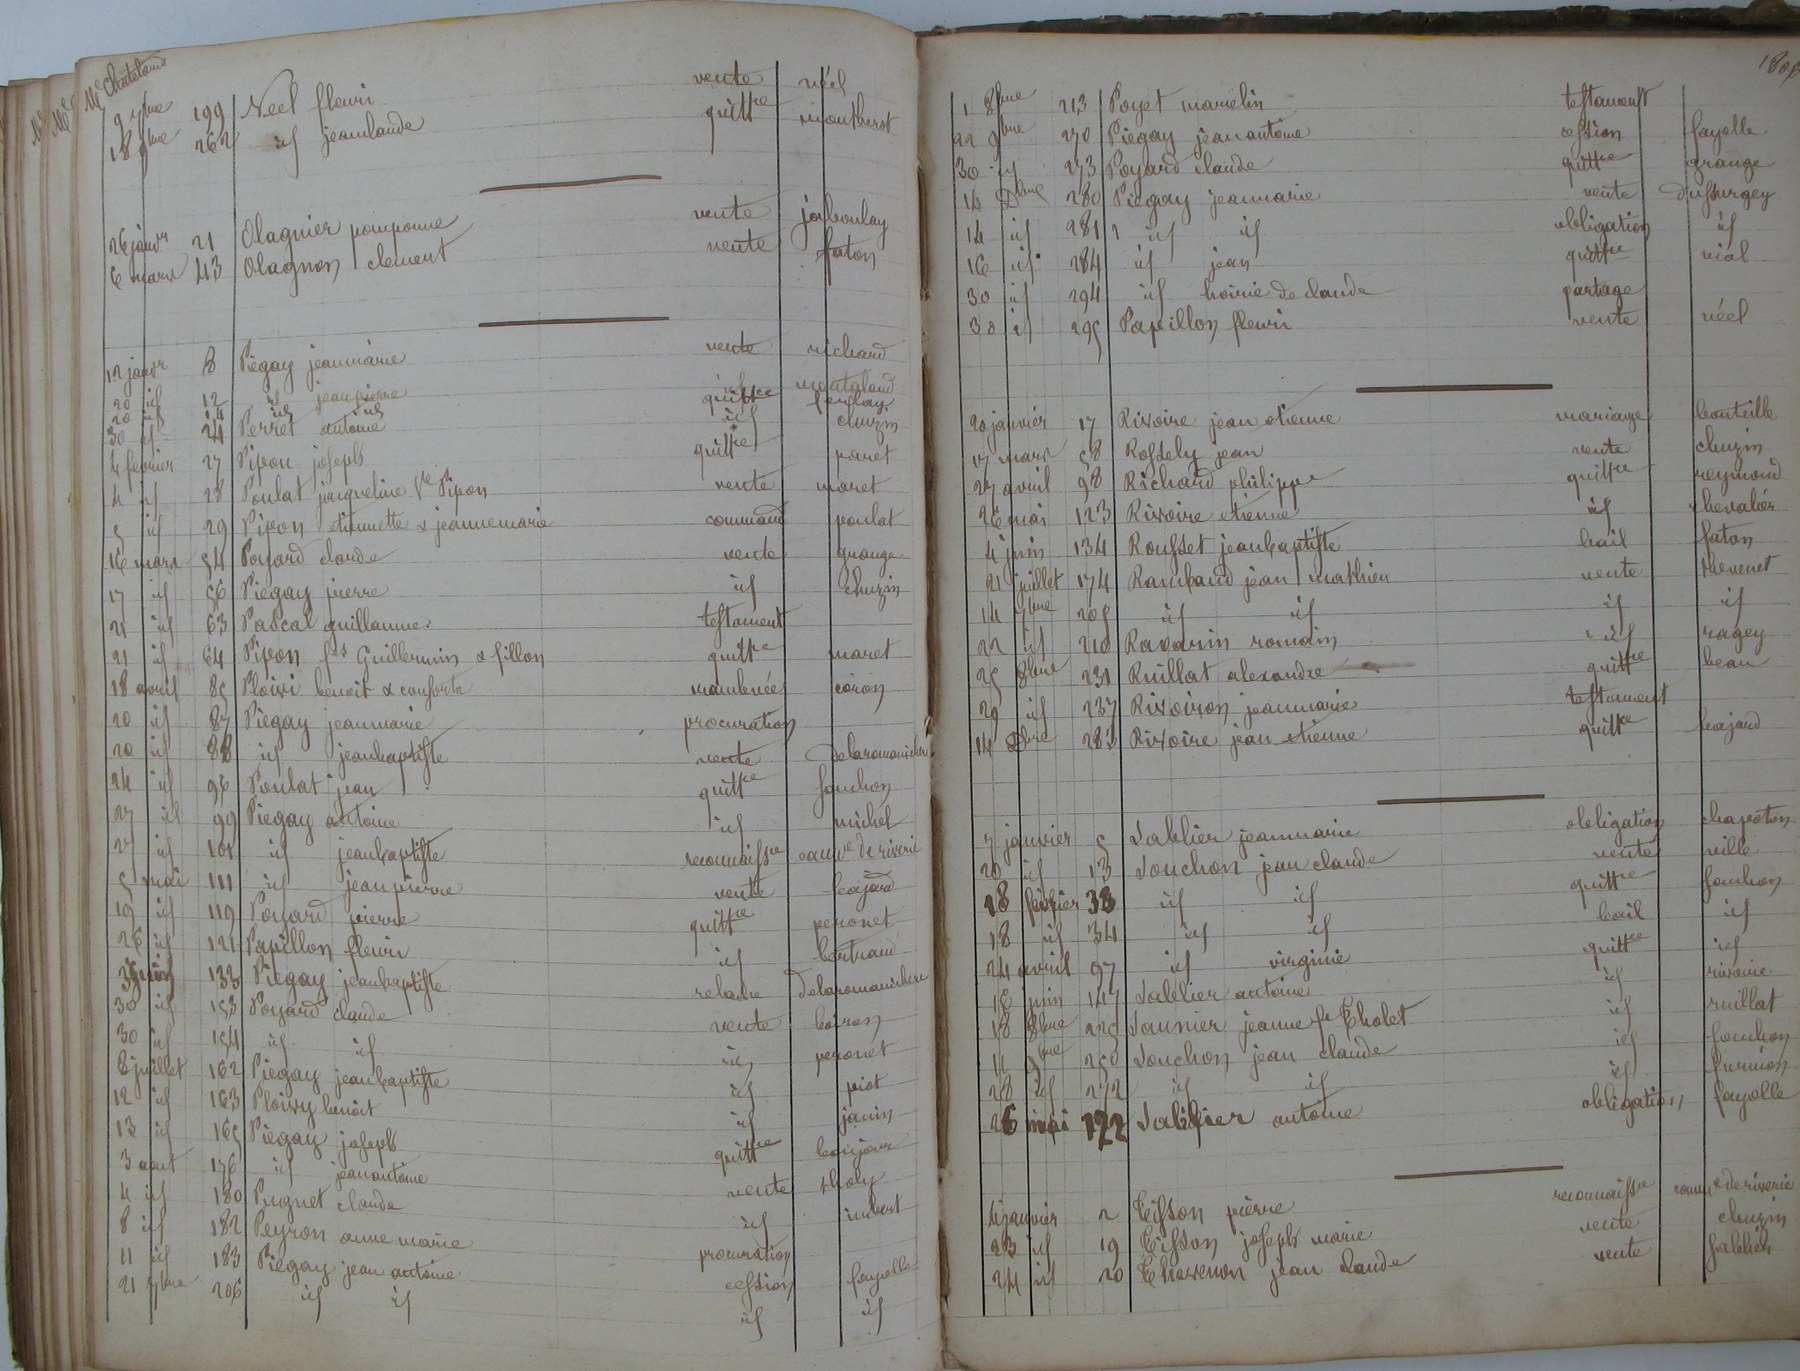 Me Chateland
9 7bre 199 Neel fleuri vente néel
18 9bre 262 id jeanclaude quittce montherot
26 janvr 21 Olagnier pomponne vente jouboulay
6 mars 43 Olagnon clement vente faton
12 janvr 8 Piegay jeanmarie vente richard
20 id 12 id jeanpierre id montaland
20 id 14 id id quittce
30 id 24 Perret antoine id chuzin
4 fevrier 27 Pipon joseph quittce paret
4 id 28 Poulat jacqueline Ve Pipon vente maret
5 id 29 Pipon etiennette & jeannemarie command poulat
16 mars 54 Poyard claude vente grange
17 id 56 Piegay pierre id chuzin
21 id 63 Pascal guillaume testament
21 id 64 Pipon fs Guillermin & fillon quittce maret
18 avril 85 Ploivi benoit & consorts mainlevée coron
20 id 87 Piegay jeanmarie procuration
20 id 88 id jeanbaptiste vente delaromanichere
24 id 96 Poulat jean quittce fonchon
27 id 99 Piegay antoine id michel
27 id 101 id jeanbaptiste reconnaissce de riverie
5 mai 111 id jeanpierre vente bajard
19 id 119 Poyard pierre quittce peronet
26 id 121 Papillon fleuri id bertrand
3 juin 133 Piegay jeanbaptiste delaromanichere
30 id 153 Poyard claude vente boiron
30 id 154 id id id peronet
8 juillet 162 Piegay jeanbaptiste id piot
12 id 163 Ploivy benoit id janin
13 id 165 Piegay joseph quittce bonjour
3 aout 176 id jeanantoine vente tholy
4 id 180 Pugnet claude id imbert
8 id 182 Peyron anne marie procuration
11 id 183 Piegay jean antoine cession fayolle
21 7bre 206 id id id id
1806
1 8bre 213 Poyet marcelin testament
22 9bre 270 Piegay jeanantoine cession fayolle
30 id 273 Poyard claude quittce grange
14 Dbre 280 Piegay jeanmarie vente dussurgey
14 id 281 id id obligation id
16 id 284 id jean quittce vial
30 id 294 id hoirie de claude partage
30 id 295 Papillon fleuri vente néel
20 janvier 17 Rivoire jean etienne mariage bouteille
17 mars 58 Rossely jean vente chuzin
27 avril 98 Richard philippe quittce reymond
26 mai 123 Rivoire etienne id chevalier
4 juin 134 Rousset jeanbaptiste bail faton
21 juillet 174 Rambaud jean mathieu vente thevenet
14 7bre 205 id id id id
22 id 210 Ravarin romain id ragey
25 8bre 231 Ruillat alexandre quittce beau
29 id 237 Rivoiron jeanmarie testament
14 Dbre 283 Rivoire jean etienne quittce bajard
7 janvier 5 Sablier jeanmarie obligation chapoton
20 id 13 Souchon jean claude vente ville
18 fevrier 33 id id quittce fonchon
18 id 34 id id bail id
24 avril 97 id virginie quittce id
18 juin 147 Sablier antoine id rivoire
18 8bre 225 Saunier jeanne fe Tholet id ruillat
14 9bre 250 Souchon jean claude id fonchon
28 id 272 id id id furnion
26 mai 122 Sablier antoine obligation fayolle
4 janvier 2 Tisson pierre reconnaissce de riverie
23 id 19 Tisson joseph marie vente chuzin
24 id 20 Thevenon jean claude vente sablier